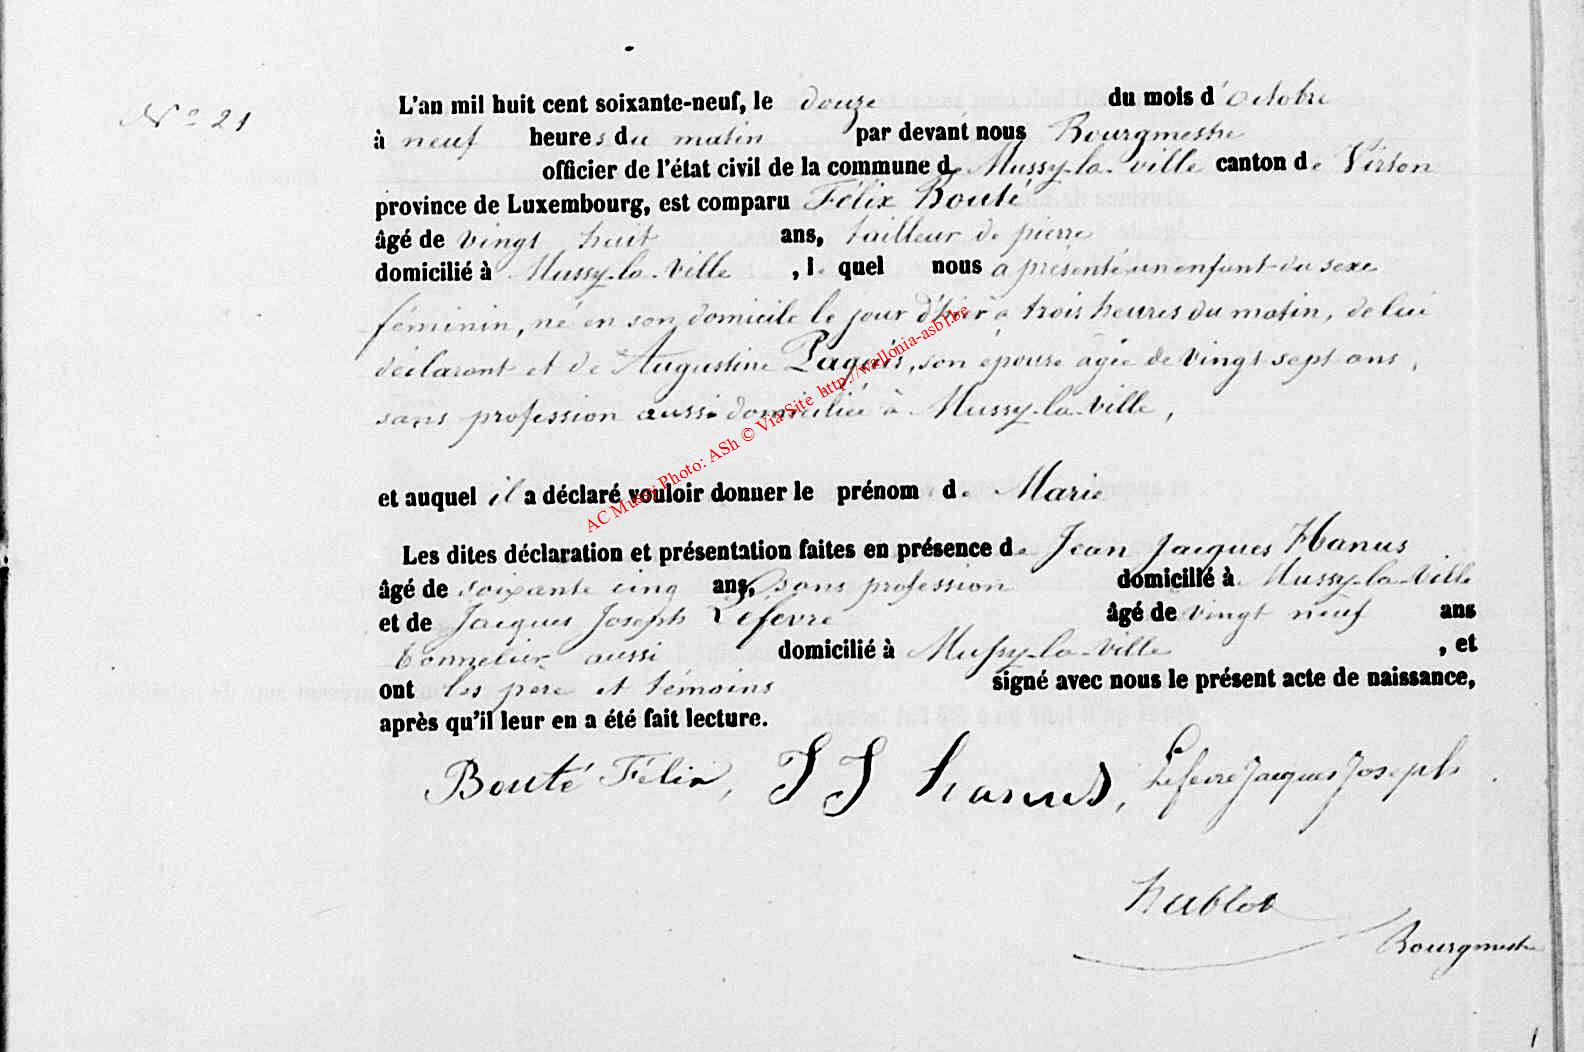 N° 21
L'an mil huit cent soixante-neuf, le douze du mois d'octobre
à neuf heures du matin par devant nous Bourgmestre
officier de l'état civil de la commune de Mussy-la-ville canton de Virton
province de Luxembourg, est comparu Félix Bouté
âgé de vingt huit ans, tailleur de pierre
domicilié à Mussy-la-Ville, le quel nous a présenté un enfant du sexe
féminin, né en son domicile le jour d'hier à trois heures du matin, de lui
déclarant et de Augustine Pagnis, son épouse âgée de vingt sept ans,
sans profession aussi domiciliée à Mussy-la-Ville,
et auquel il a déclaré vouloir donner le prénom de Marie
Les dites déclaration et présentation faites en présence de Jean Jacques Hanus
âgé de soixante cinq ans, sans profession domicilié à Mussy-la-Ville
et de Jacques Joseph Lefevre âgé de vingt neuf ans
tonnelier aussi domicilié à Mussy-la-Ville, et
ont les père et témoins signé avec nous le présent acte de naissance,
après qu'il leur en a été fait lecture.
Bouté Félix, J J hanus, Lefevre Jacques Joseph.
hublot
Bourgmestre
AC Mussy Photo: ASh © Via Site http://wallonia-asbl.be